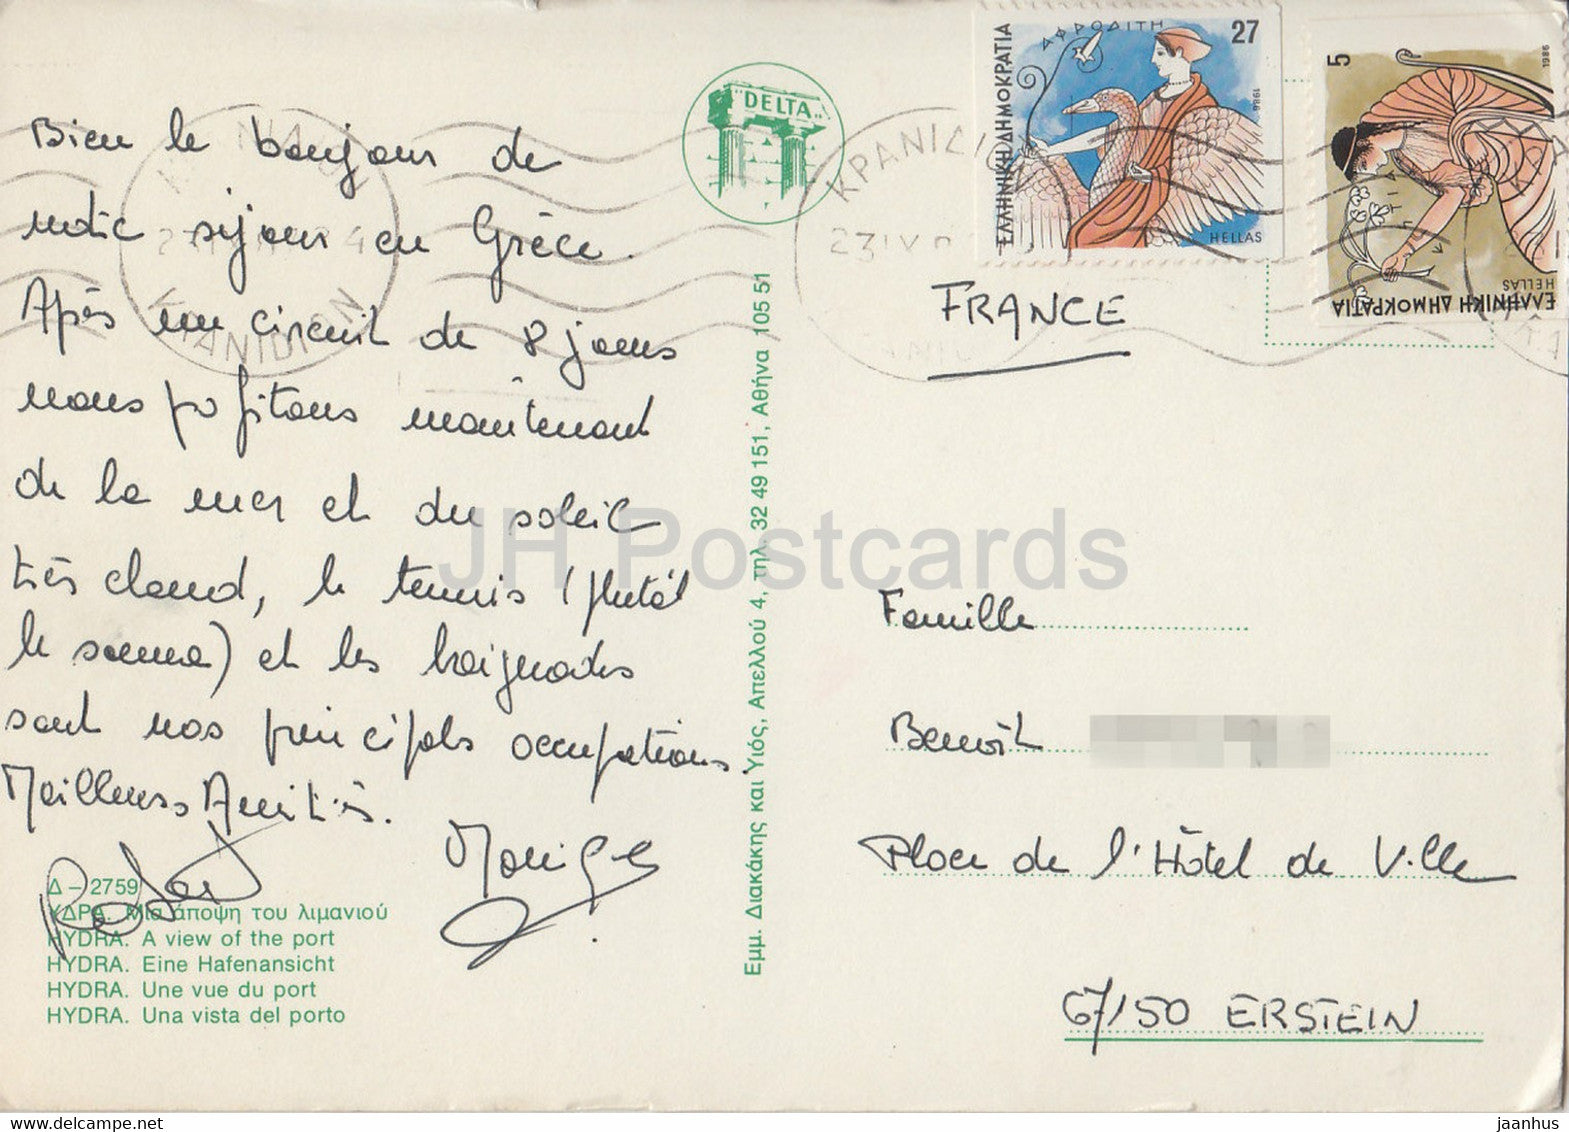 Bien le bonjour de
notre séjour en Grèce.
Après un circuit de 8 jours
nous profitons maintenant
de la mer et du soleil
très chaud, le tennis (plutôt
le sauna) et les baignades
sont nos principales occupations.
Meilleures Amitiés.
Δ – 2759
ΥΔΡΑ. Μια άποψη του λιμανιού
HYDRA. A view of the port
HYDRA. Eine Hafenansicht
HYDRA. Une vue du port
HYDRA. Una vista del porto
DELTA
Εμμ. Διακάκης και Υιός, Απελλού 4, τηλ. 32 49 151, Αθήνα 105 51
ΚΡΑΝΙΔΙΟΝ
KRANIDION
ΕΛΛΗΝΙΚΗ ΔΗΜΟΚΡΑΤΙΑ
ΑΦΡΟΔΙΤΗ
27
1986
HELLAS
5
1986
HELLAS
ΕΛΛΗΝΙΚΗ ΔΗΜΟΚΡΑΤΙΑ
FRANCE
Famille
Benoît
Place de l'Hôtel de Ville
67150 ERSTEIN
JH Postcards
www.delcampe.net
jaanhus